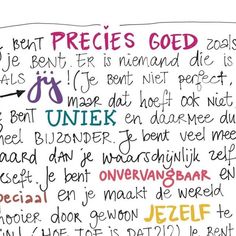 JE BENT PRECIES GOED zoals
je BENT. ER is niemand die is
ALS jij! (Je BENT niet perfect,
maar dat hoeft ook niet
Je BENT UNIEK en daarmee du
heel BIJZONDER. Je bent veel mee
waard dan je waarschijnlijk zelf
beseft. Je bent ONVERVANGBAAR en
speciaal en je maakt de wereld
mooier door gewoon JEZELF te
(HOE TOF is DAT?!?) Je BENT